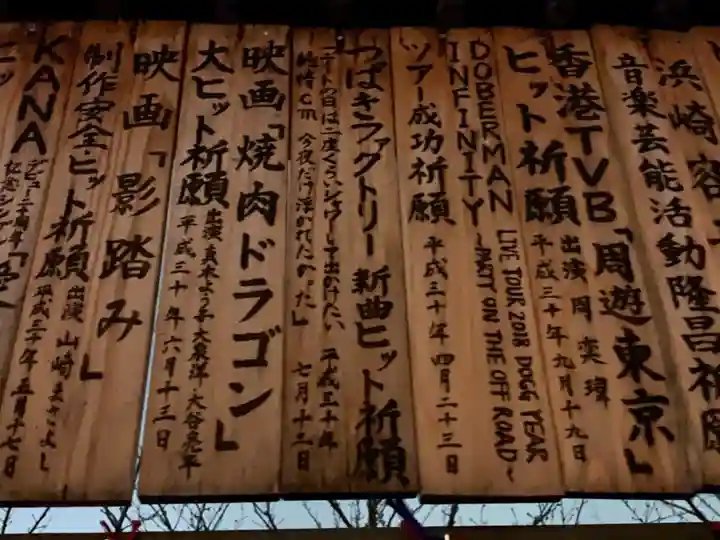 浜崎容
音楽芸能活動隆昌祈願
香港TVB「周遊東京」
ヒット祈願
出演 周奕瑋
平成三十年九月十九日
DOBERMAN
INFINITY
LIVE TOUR 2018 DOGG YEAR
～PARTY ON THE OFF ROAD～
ツアー成功祈願
平成三十年四月二十三日
つばきファクトリー 新曲ヒット祈願
「デートの日は二度くらいシャワーして出かけたい
純情cm
今夜だけ浮かれたかった」
平成三十年
七月十二日
映画「焼肉ドラゴン」
大ヒット祈願
出演 真木よう子 大泉洋 大谷亮平
平成三十年六月十三日
映画「影踏み」
制作安全ヒット祈願
出演 山崎まさよし
平成三十年五月十七日
KANA
デビュー二十周年
記念シングル